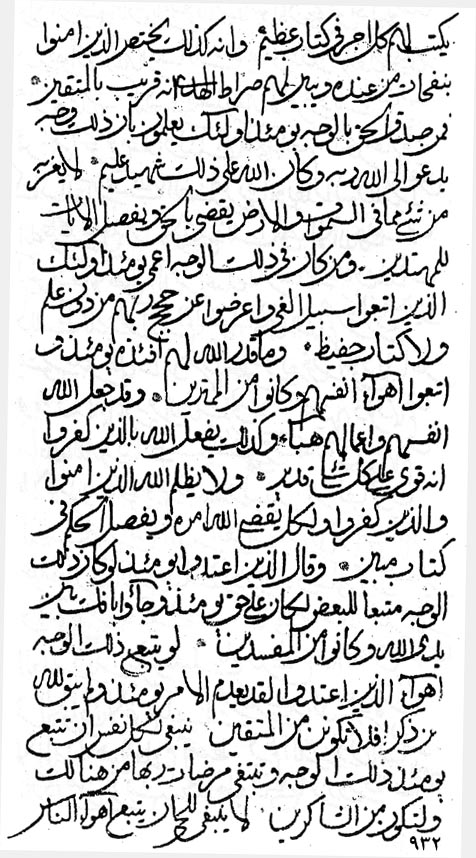 يكتب لهم كل اجر فى كتاب عظيم وانه كذلك يختص الذين امنوا
بنفحات من عنده ويبين لهم صراط الهدى انه قريب بالمتقين
فمن صدق الحق بالوجه يومئذ اولئك يعلمون بان ذلك وجه
يدعو الى الله ربه وكان الله على ذلك شهيد عليم لا يعزب
من شئ مما فى السموات والارض يقضى بالحق ويفصل الايات
للمهتدين ومن كان فى ذلك الوجه اعمى يومئذ اولئك
الذين اتبعوا سبيل الغى واعرضوا عن حجج ربهم من دون علم
ولا كتاب حفيظ وما قدر الله لهم افئدة يومئذ
اتبعوا اهواء انفسهم وكانوا من الممترين وقد جعل الله
انفسهم واعمالهم هباء وكذلك يفعل الله بالذين كفروا
انه قوى على كل شئ قدير ولا يظلم الله الذين امنوا
والذين كفروا ولكل يقضى الله امره ويفصل الحكم فى
كتاب مبين وقال الذين اعتدوا يومئذ لو كان ذلك
الوجه متبعا للبعض لكان على حق يومئذ وجاءوا بانك بين
يدى الله وكانوا من المفسدين لو يتبع ذلك الوجه
اهواء الذين اعتدوا لقد يعدم الامر يومئذ لله
من ذكر فلا تكونن من المتقين ينبغى لكل نفس ان تتبع
يومئذ ذلك الوجه وتبتغى مرضات ربها من هنالك
ولتكون من الشاكرين لا ينبغى للحق ان يتبع اهواء الناس
٩٣٢